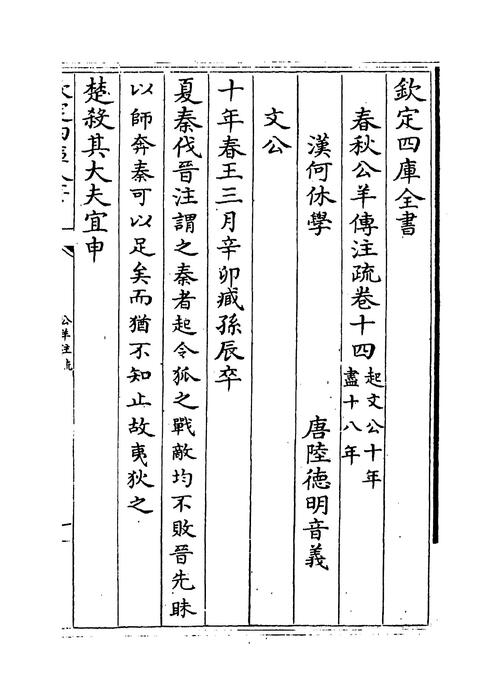 欽定四庫全書
春秋公羊傳注疏卷十四
起文公十年
盡十八年
漢何休學
唐陸德明音義
文公
十年春王三月辛卯臧孫辰卒
夏秦伐晉注謂之秦者起令狐之戰敵均不敗晉先昧
以師奔秦可以足矣而猶不知止故夷狄之
楚殺其大夫宜申
公羊注疏